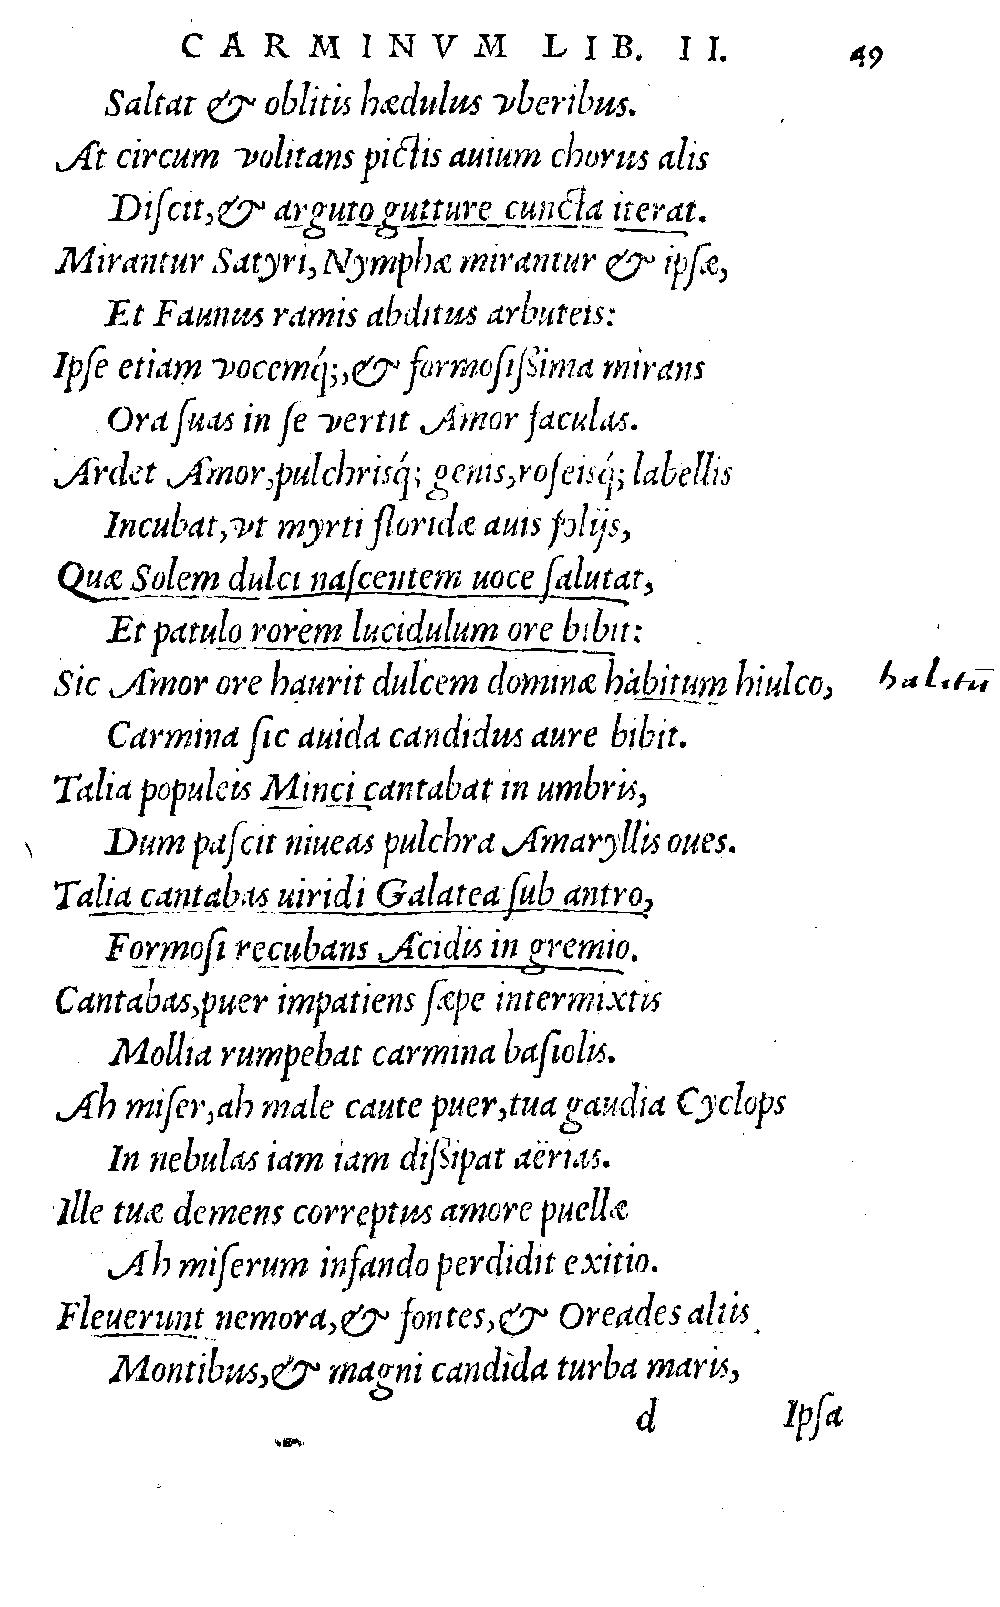 CARMINVM LIB. II. 49
Saltat & oblitis hædulus vberibus.
At circum volitans pictis auium chorus alis
Diſcit, & arguto gutture cuncta iterat.
Mirantur Satyri, Nymphæ mirantur & ipſæ,
Et Faunus ramis abditus arbuteis:
Ipſe etiam vocemq́;, & formoſiſsima mirans
Ora ſuas in ſe vertit Amor faculas.
Ardet Amor, pulchrisq́; genis, roſeisq́; labellis
Incubat, vt myrti floridæ auis folijs,
Quæ Solem dulci naſcentem uoce ſalutat,
Et patulo rorem lucidulum ore bibit:
Sic Amor ore haurit dulcem dominæ habitum hiulco, halitū
Carmina ſic auida candidus aure bibit.
Talia populeis Minci cantabat in umbris,
Dum paſcit niueas pulchra Amaryllis oues.
Talia cantabas uiridi Galatea ſub antro,
Formoſi recubans Acidis in gremio.
Cantabas, puer impatiens ſæpe intermixtis
Mollia rumpebat carmina baſiolis.
Ah miſer, ah male caute puer, tua gaudia Cyclops
In nebulas iam iam diſsipat aërias.
Ille tuæ demens correptus amore puellæ
Ah miſerum infando perdidit exitio.
Fleuerunt nemora, & fontes, & Oreades altis
Montibus, & magni candida turba maris,
d Ipſa